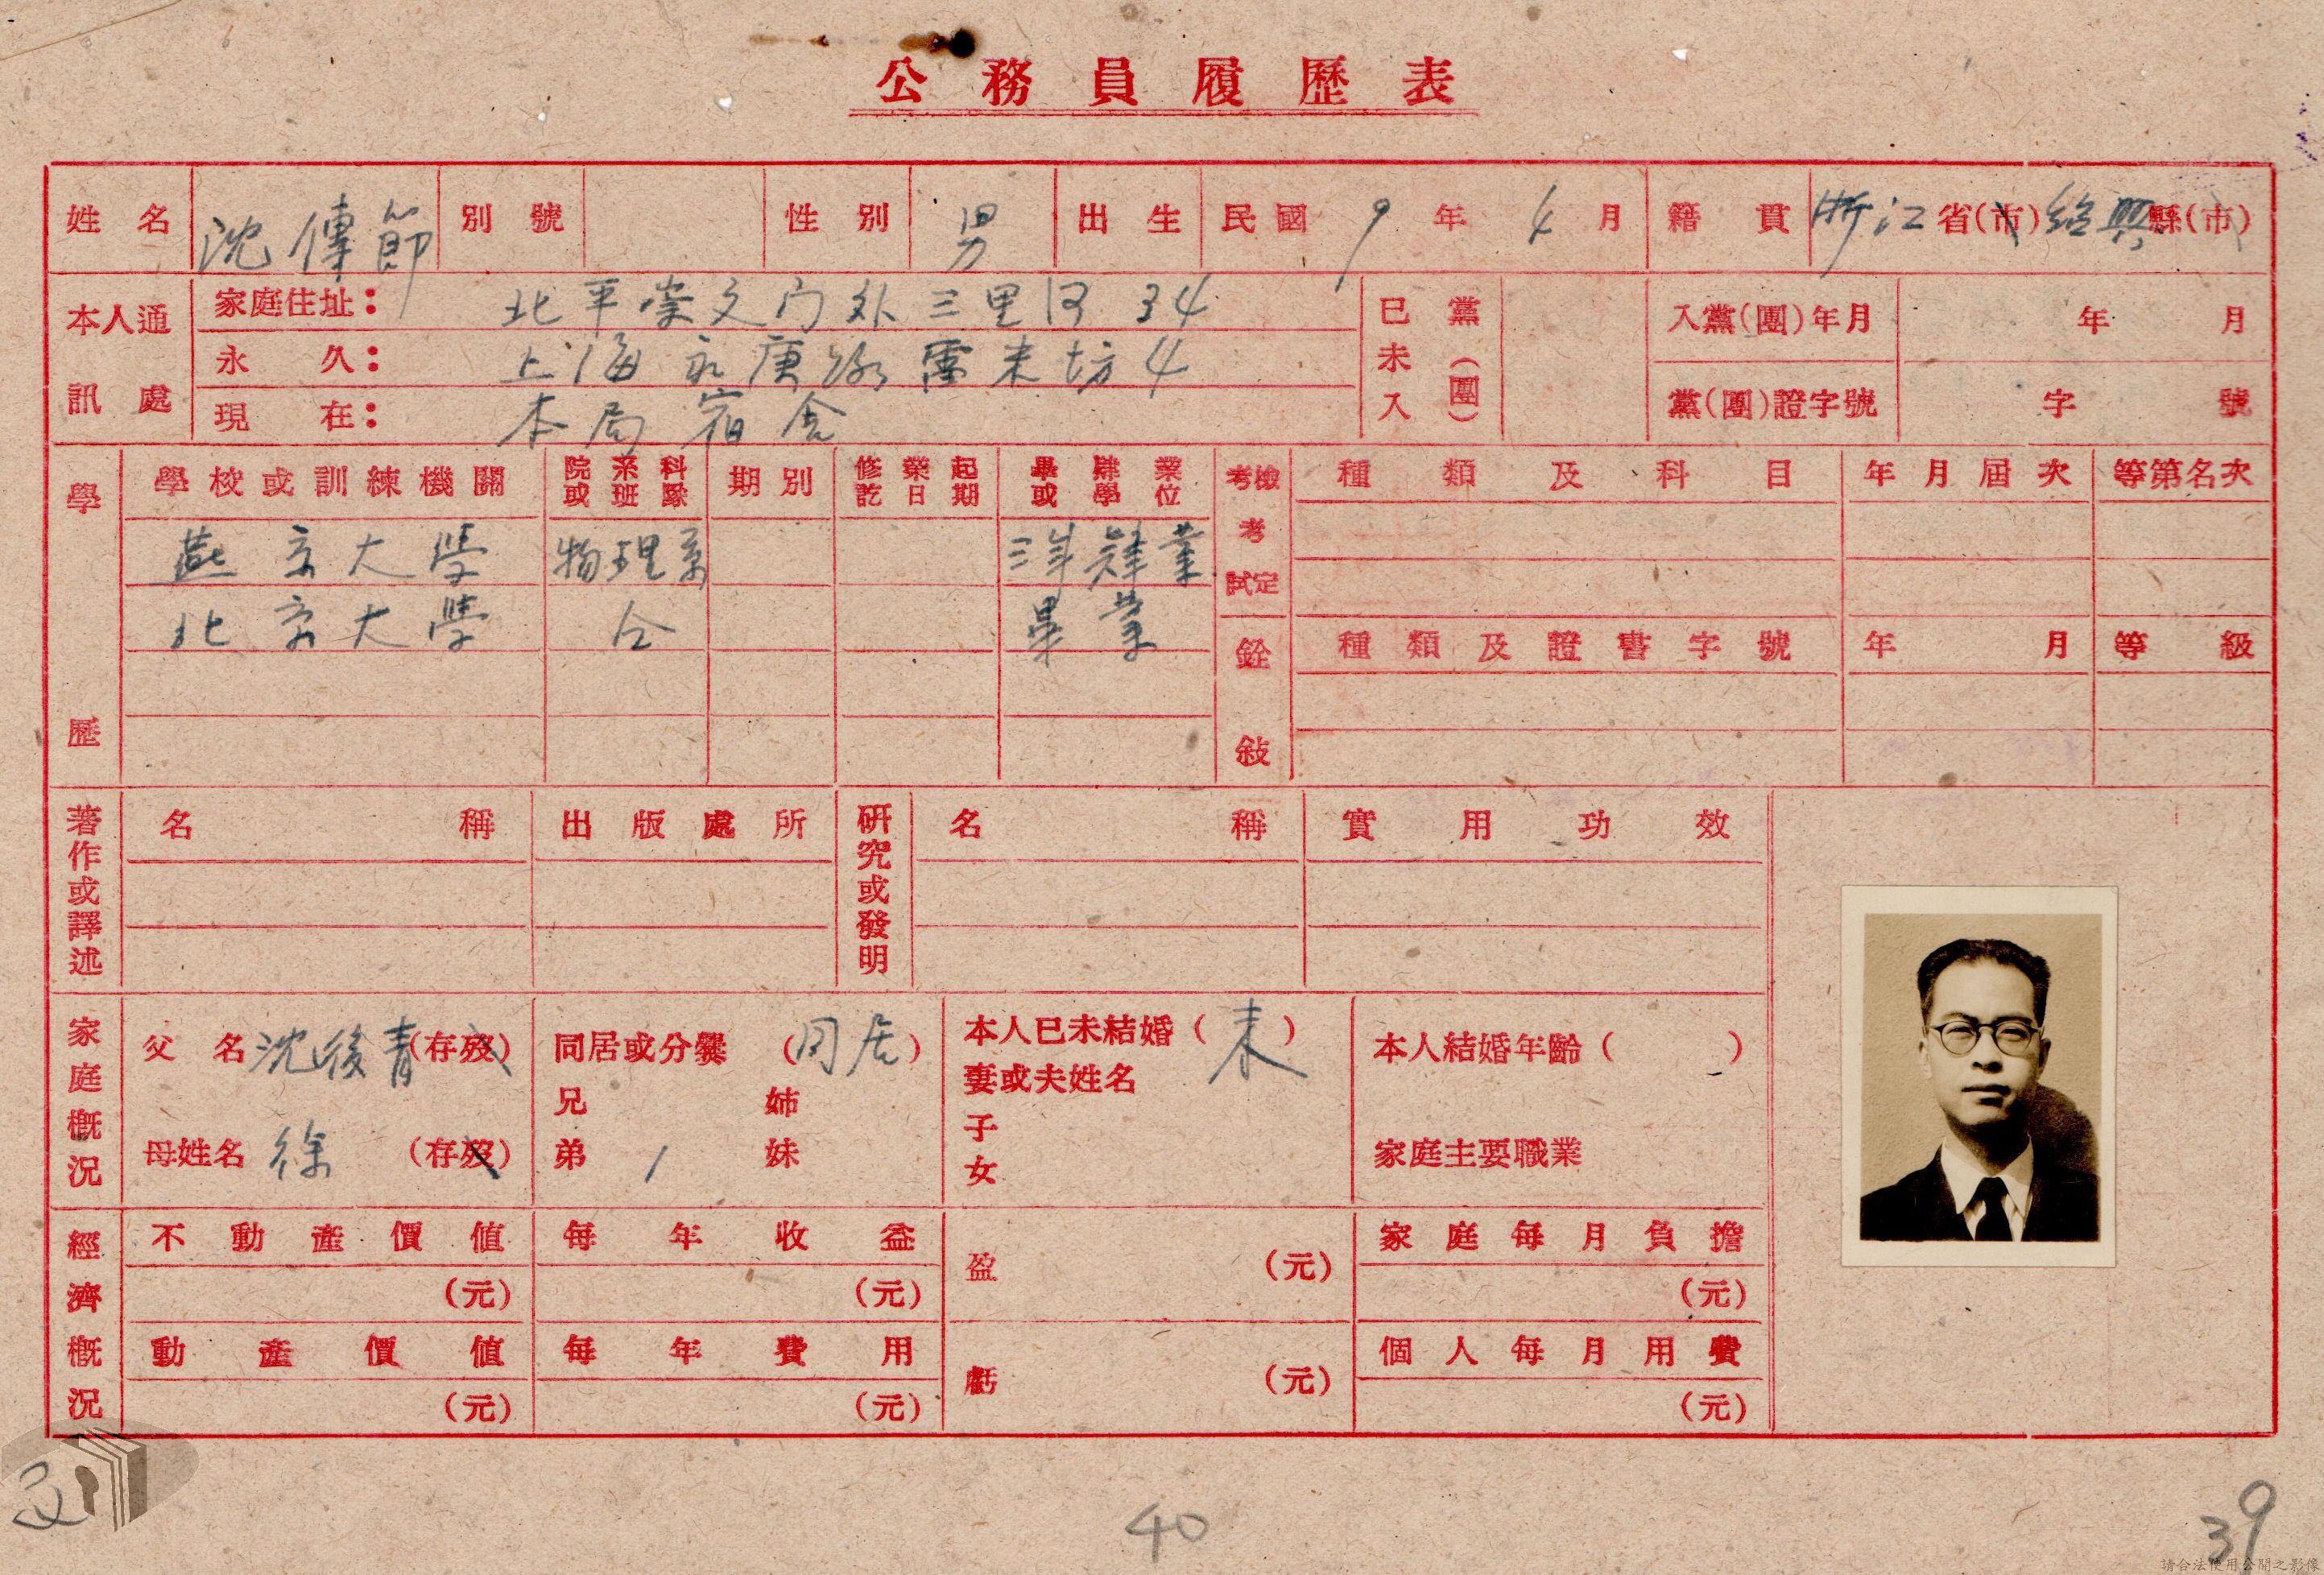 公務員履歷表
姓名 沈傳節 別號 性別 男 出生 民國 9 年 4 月 籍貫 浙江 省(市) 紹興 縣(市)
本人通訊處
家庭住址： 北平崇文门外三里河 34
永久： 上海永康路雷米坊 4
現在： 本局宿舍
已未入 黨(團)
入黨(團)年月 年 月
黨(團)證字號 字 號
學歷
學校或訓練機關 院系科或班隊 期別 修業起訖日期 畢肄業或學位
燕京大學 物理系 三年肄業
北京大學 仝 畢業
考檢考試定 種類及科目 年月屆次 等第名次
銓敍 種類及證書字號 年月 等級
著作或譯述 名稱 出版處所
研究或發明 名稱 實用功效
家庭概況
父名 沈後青 (存歿)
母姓名 徐 (存歿)
同居或分爨 (同居)
兄 姉
弟 1 妹
本人已未結婚 (未)
妻或夫姓名
子
女
本人結婚年齡 ( )
家庭主要職業
經濟概況
不動產價值 每年收益 盈 (元) 家庭每月負擔
(元) (元) (元)
動產價值 每年費用 虧 (元) 個人每月用費
(元) (元) (元)
40
39
請合法使用公開之影像